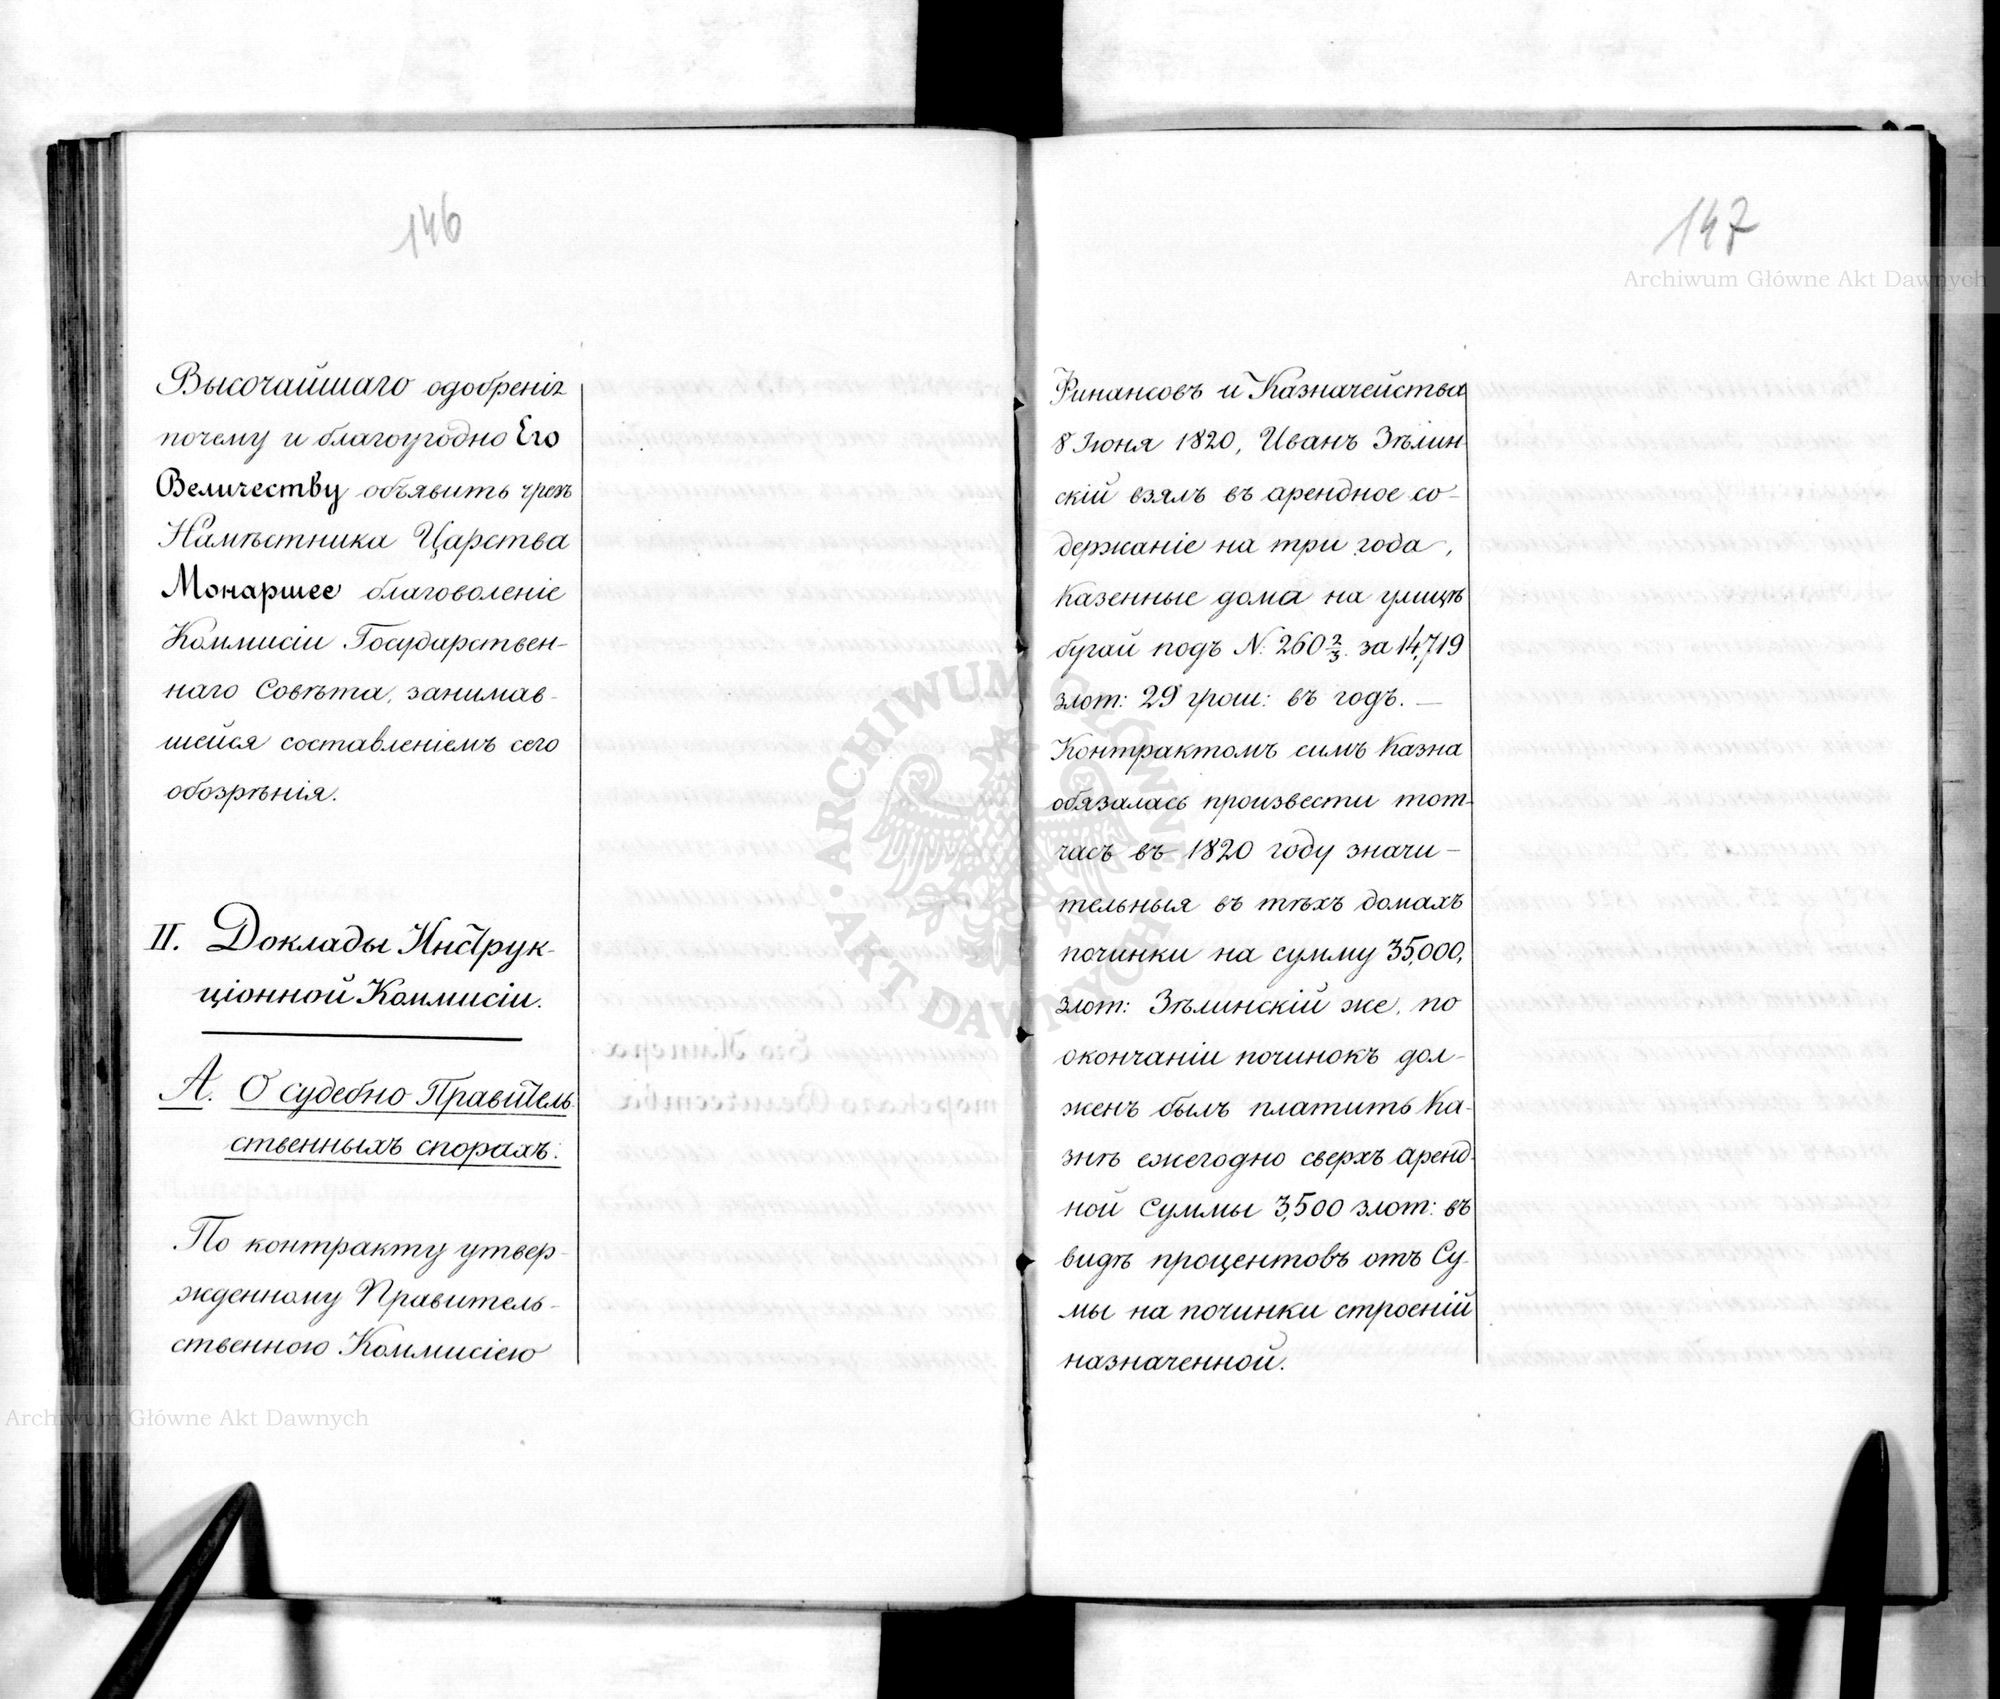 146
Высочайшаго одобренія
почему и благоугодно Его
Величеству объявить чрезъ
Намѣстника Царства
Монаршее благоволеніе
Коммисіи Государствен-
наго Совѣта, занимав-
шейся составленіемъ сего
обозрѣнія.
II. Доклады Инструк-
ціонной Коммисіи.
А. О судебно Правитель-
ственныхъ спорахъ:
По контракту утвер-
жденному Правитель-
ственною Коммисіею
147
Финансовъ и Казначейства
8 Іюня 1820, Иванъ Зѣлин-
скій взялъ въ арендное со-
держаніе на три года,
Казенные дома на улицѣ
бугай подъ N: 260 2/3. за 14,719
злот: 29 грош: въ годъ. —
Контрактомъ симъ Казна
обязалась произвести тот-
часъ въ 1820 году значи-
тельныя въ тѣхъ домахъ
починки на сумму 35,000,
злот: Зѣлинскій же, по
окончаніи починокъ дол-
женъ былъ платить Ка-
знѣ ежегодно сверхъ аренд-
ной Суммы 3,500 злот: въ
видѣ процентовъ отъ Су-
мы на починки строеній
назначенной.
Archiwum Główne Akt Dawnych
ARCHIWUM GŁÓWNE · AKT DAWNYCH ·
Archiwum Główne Akt Dawnych